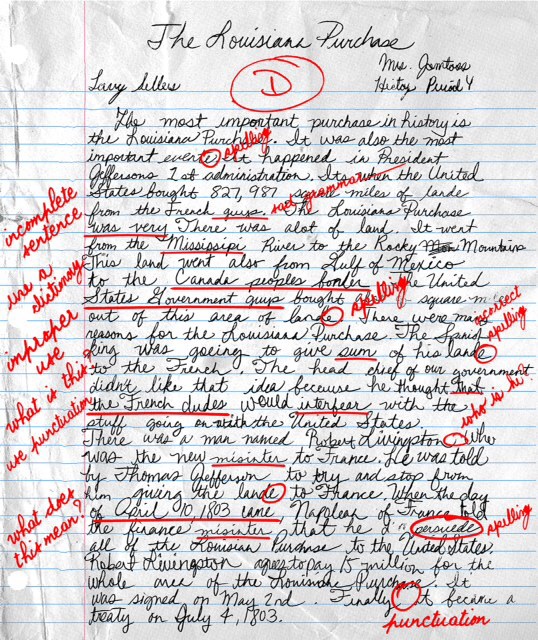 The Louisiana Purchase
Mrs. Jomtoss
Larry Sellers
D
History Period 4
The most important purchase in history is
the Louisiana Purchase. It was also the most
spelling
important evente It happened in President
Jeffersons 1st administration. Its when the United
bad grammar
States bought 827,987 square miles of lande
incomplete sentence
from the French guys. The Louisiana Purchase
was very There was alot of land. It went
from the Mississipi River to the Rocky Mountains
use a dictionary
This land went also from Gulf of Mexico
to the Canada peoples border the United
spelling
States Government guys bought square
out of this area of lande There were many
incorrect spelling
improper use
reasons for the Louisiana Purchase. The Spanish
king was goeing to give sum of his lande
to the French. The head chief of our government
what is this
didn't like that idea because he thought that
who is he?
the French dudes would interfear with the
use punctuation
stuff going on with the United States.
There was a man named Robert Livingston Who
was the new misinter to France. He was told
by Thomas Jefferson to try and stop from
him giving the lande to France. When the day
what does this mean?
of April 10, 1803 came, Napolean of France told
the finance misinter that he persuede
spelling
all of the Louisian Purchase to the United States.
Robert Livingston agres to pay 15 million for the
whole area of the Louisiane Purchase. It
was signed on May 2nd. Finally It became a
punctuation
treaty on July 4, 1803.